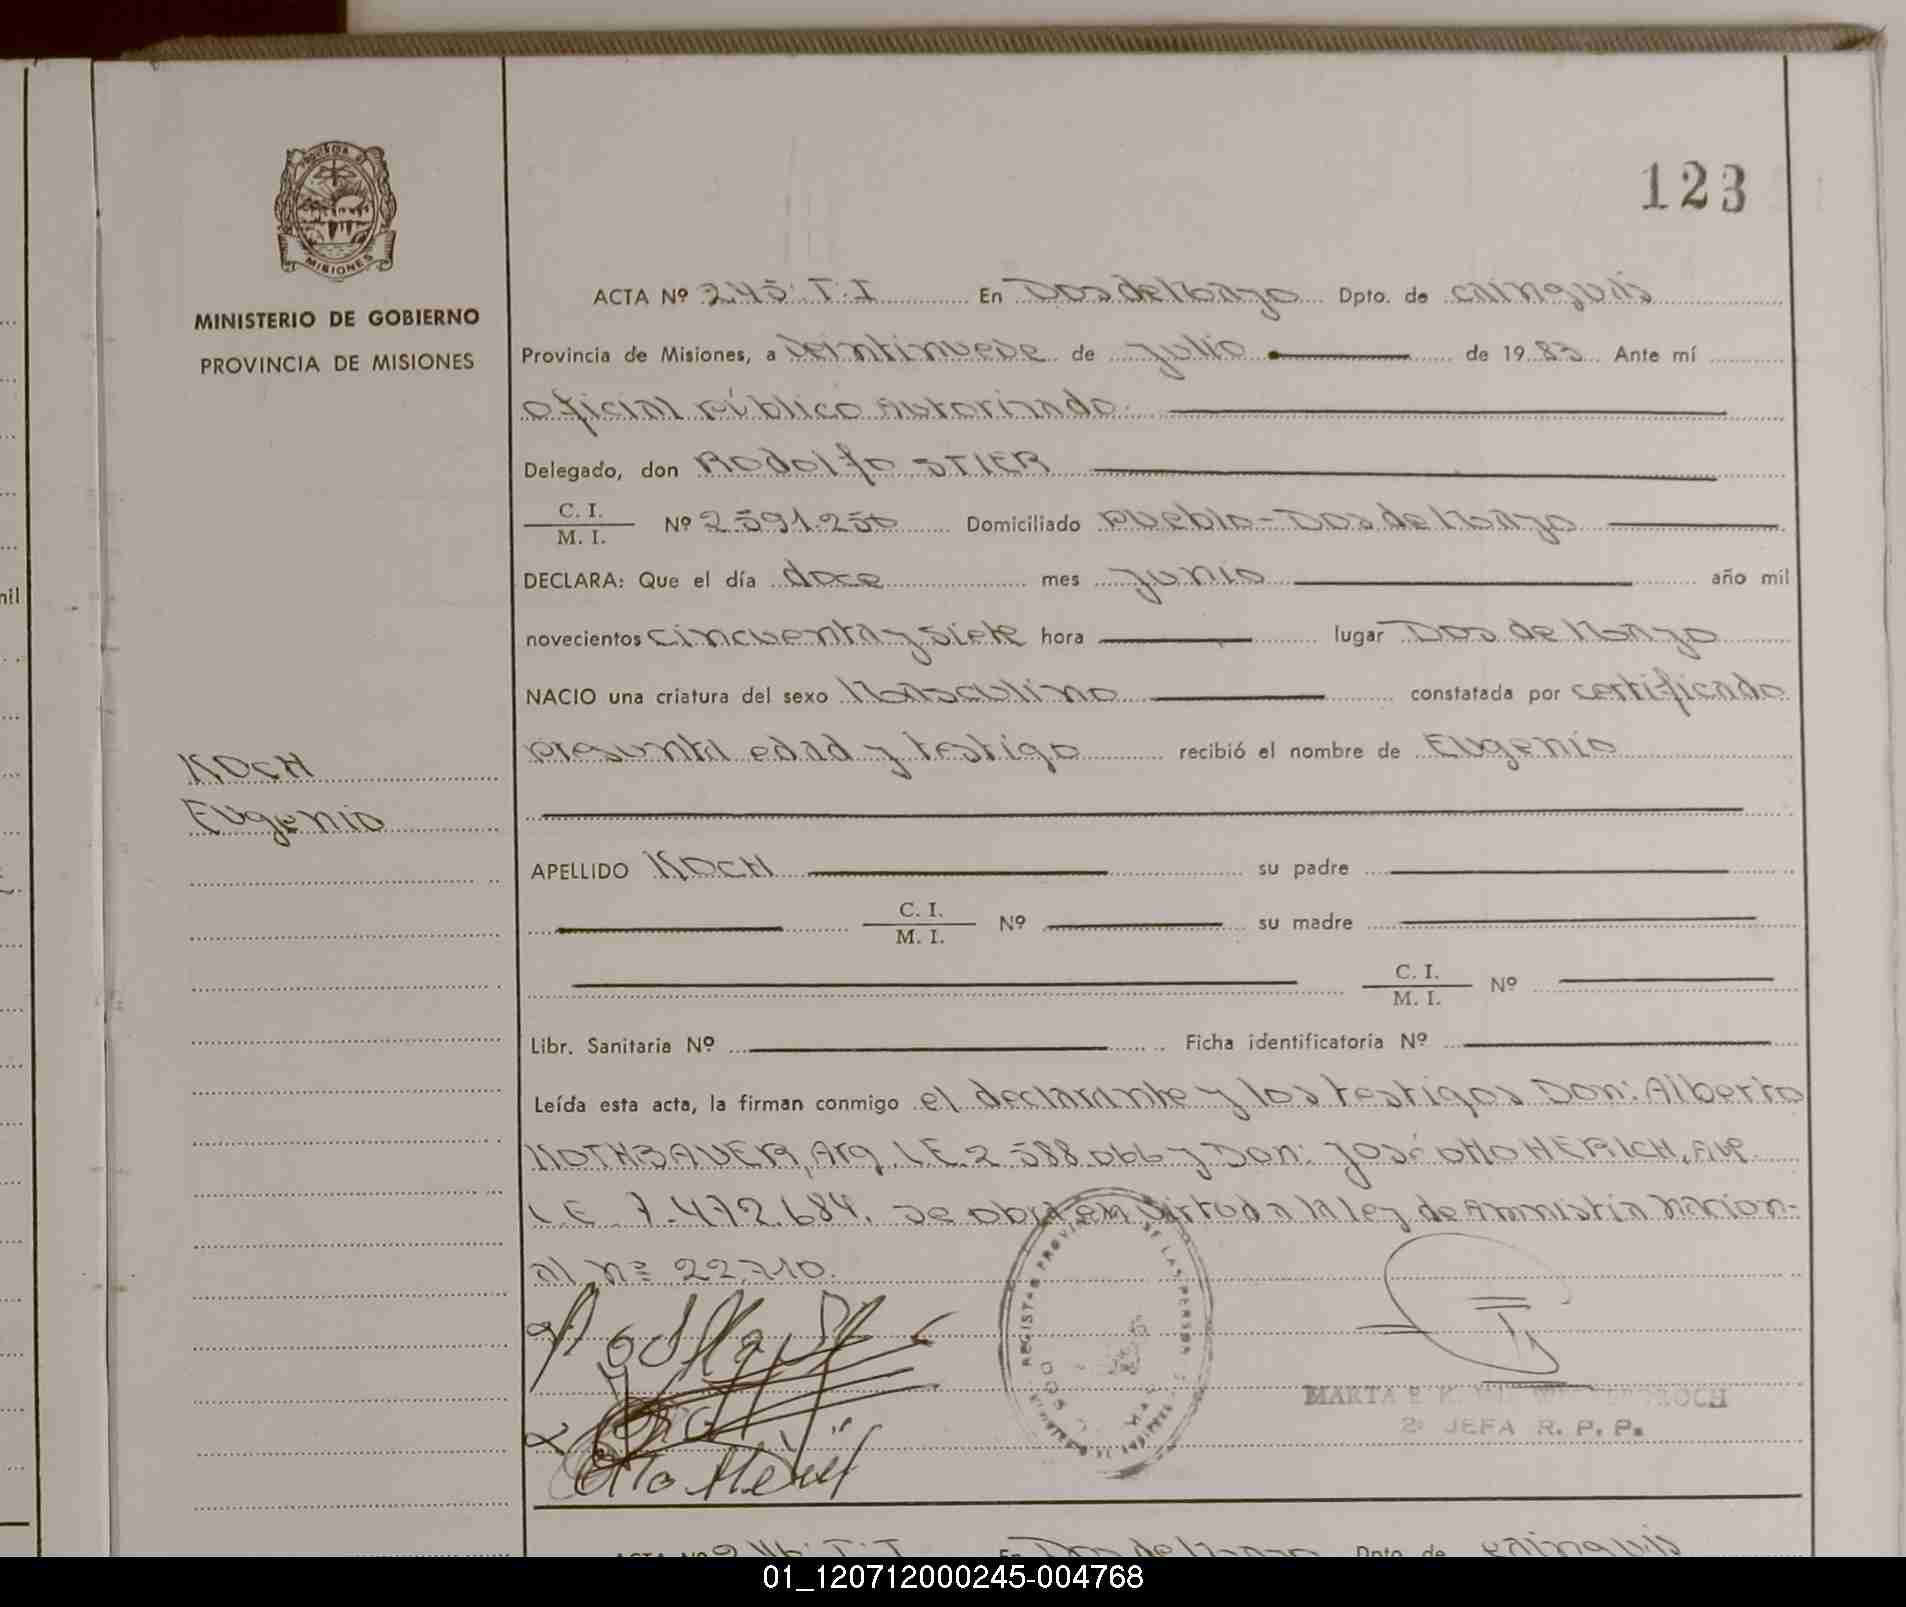 123
PROVINCIA DE
MISIONES
MINISTERIO DE GOBIERNO
PROVINCIA DE MISIONES
KOCH
Eugenio
ACTA Nº 245 T.I En Dos de Mayo Dpto. de Cainguás
Provincia de Misiones, a veintinueve de julio de 1983 Ante mí
oficial público Autorizado.
Delegado, don Rodolfo STIER
C. I.
M. I. Nº 2.591.250 Domiciliado Pueblo - Dos de Mayo
DECLARA: Que el día doce mes junio año mil
novecientos cincuenta y siete hora lugar Dos de Mayo
NACIO una criatura del sexo Masculino constatada por certificado
presunta edad y testigo recibió el nombre de Eugenio
APELLIDO KOCH su padre
C. I.
M. I. Nº su madre
C. I.
M. I. Nº
Libr. Sanitaria Nº Ficha identificatoria Nº
Leída esta acta, la firman conmigo el declarante y los testigos Don: Alberto
ROTHBAUER, Arg. L.E. 2 588.066 y Don: José Otto HERICH, Arg.
L.E. 7.472.684. Se obra en virtud a la ley de Amnistía Nacion-
al Nº 22.710.
REGISTRO PROVINCIAL DE LAS PERSONAS
MARTA
2º JEFA R. P. P.
ACTA Nº 246 T.I En Dos de Mayo Dpto. de Cainguás
mil
01_120712000245-004768